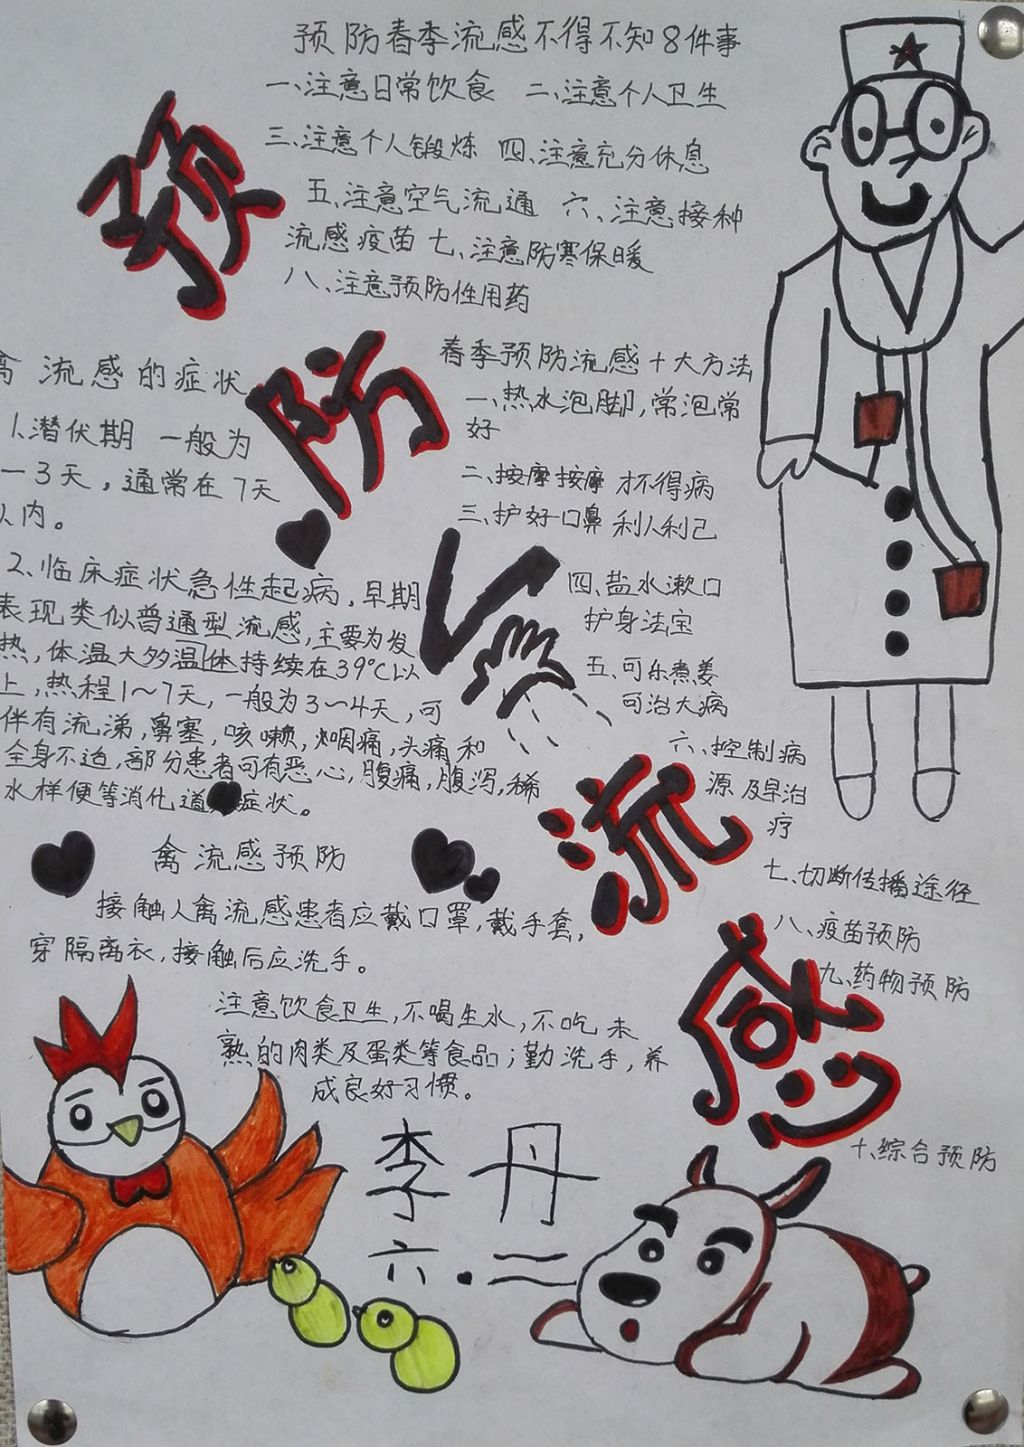 预防春季流感不得不知8件事
一、注意日常饮食 二、注意个人卫生
三、注意个人锻炼 四、注意充分休息
五、注意空气流通 六、注意接种
流感疫苗 七、注意防寒保暖
八、注意预防性用药
预
防
流
感
禽流感的症状
1.潜伏期 一般为
一3天，通常在7天
以内。
2、临床症状急性起病，早期
表现类似普通型流感，主要为发
热，体温大多温体持续在39℃以
上，热程1～7天，一般为3～4天，可
伴有流涕，鼻塞，咳嗽，咽痛，头痛和
全身不适，部分患者可有恶心，腹痛，腹泻，稀
水样便等消化道症状。
禽流感预防
接触人禽流感患者应戴口罩，戴手套，
穿隔离衣，接触后应洗手。
注意饮食卫生，不喝生水，不吃未
熟的肉类及蛋类等食品；勤洗手，养
成良好习惯。
春季预防流感十大方法
一、热水泡脚，常泡常
好
二、按摩按摩 才不得病
三、护好口鼻 利人利己
四、盐水漱口
护身法宝
五、可乐煮姜
可治大病
六、控制病
源 及早治
疗
七、切断传播途径
八、疫苗预防
九、药物预防
十、综合预防
李丹
六.二